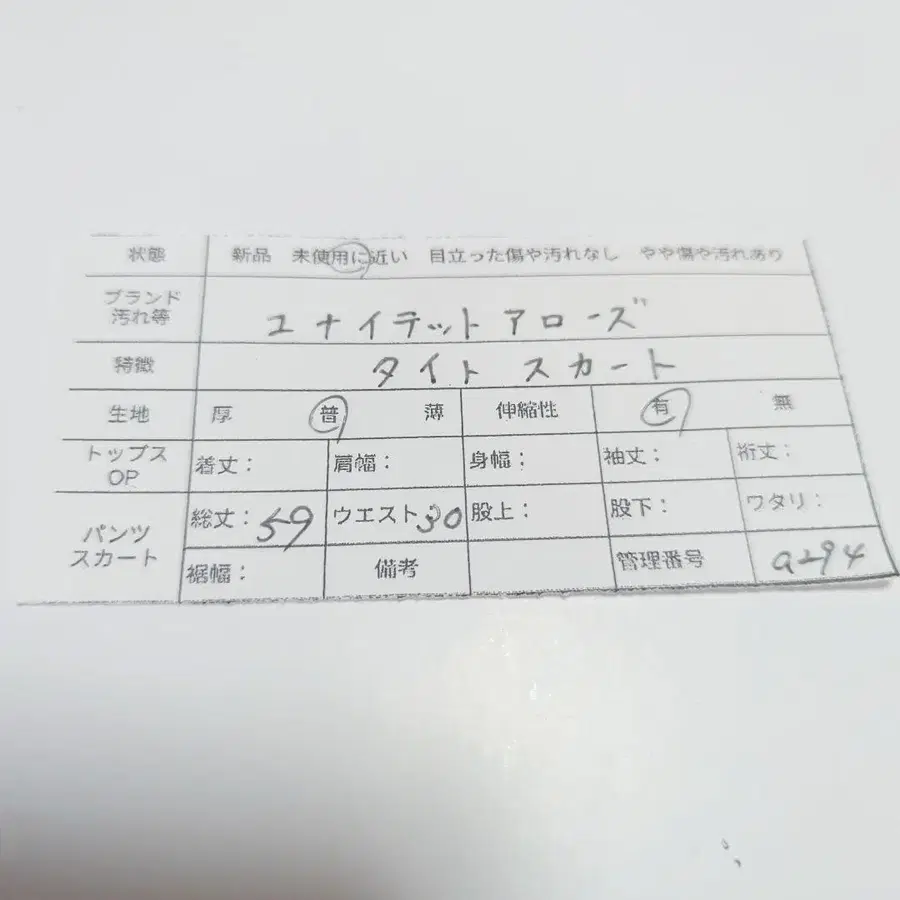 状態 新品 未使用に近い 目立った傷や汚れなし やや傷や汚れあり
ブランド
汚れ等 ユナイテット アローズ
特徴 タイト スカート
生地 厚 普 薄 伸縮性 有 無
トップス
OP 着丈： 肩幅： 身幅： 袖丈： 裄丈：
パンツ
スカート 総丈：59 ウエスト30 股上： 股下： ワタリ：
裾幅： 備考 管理番号 a294